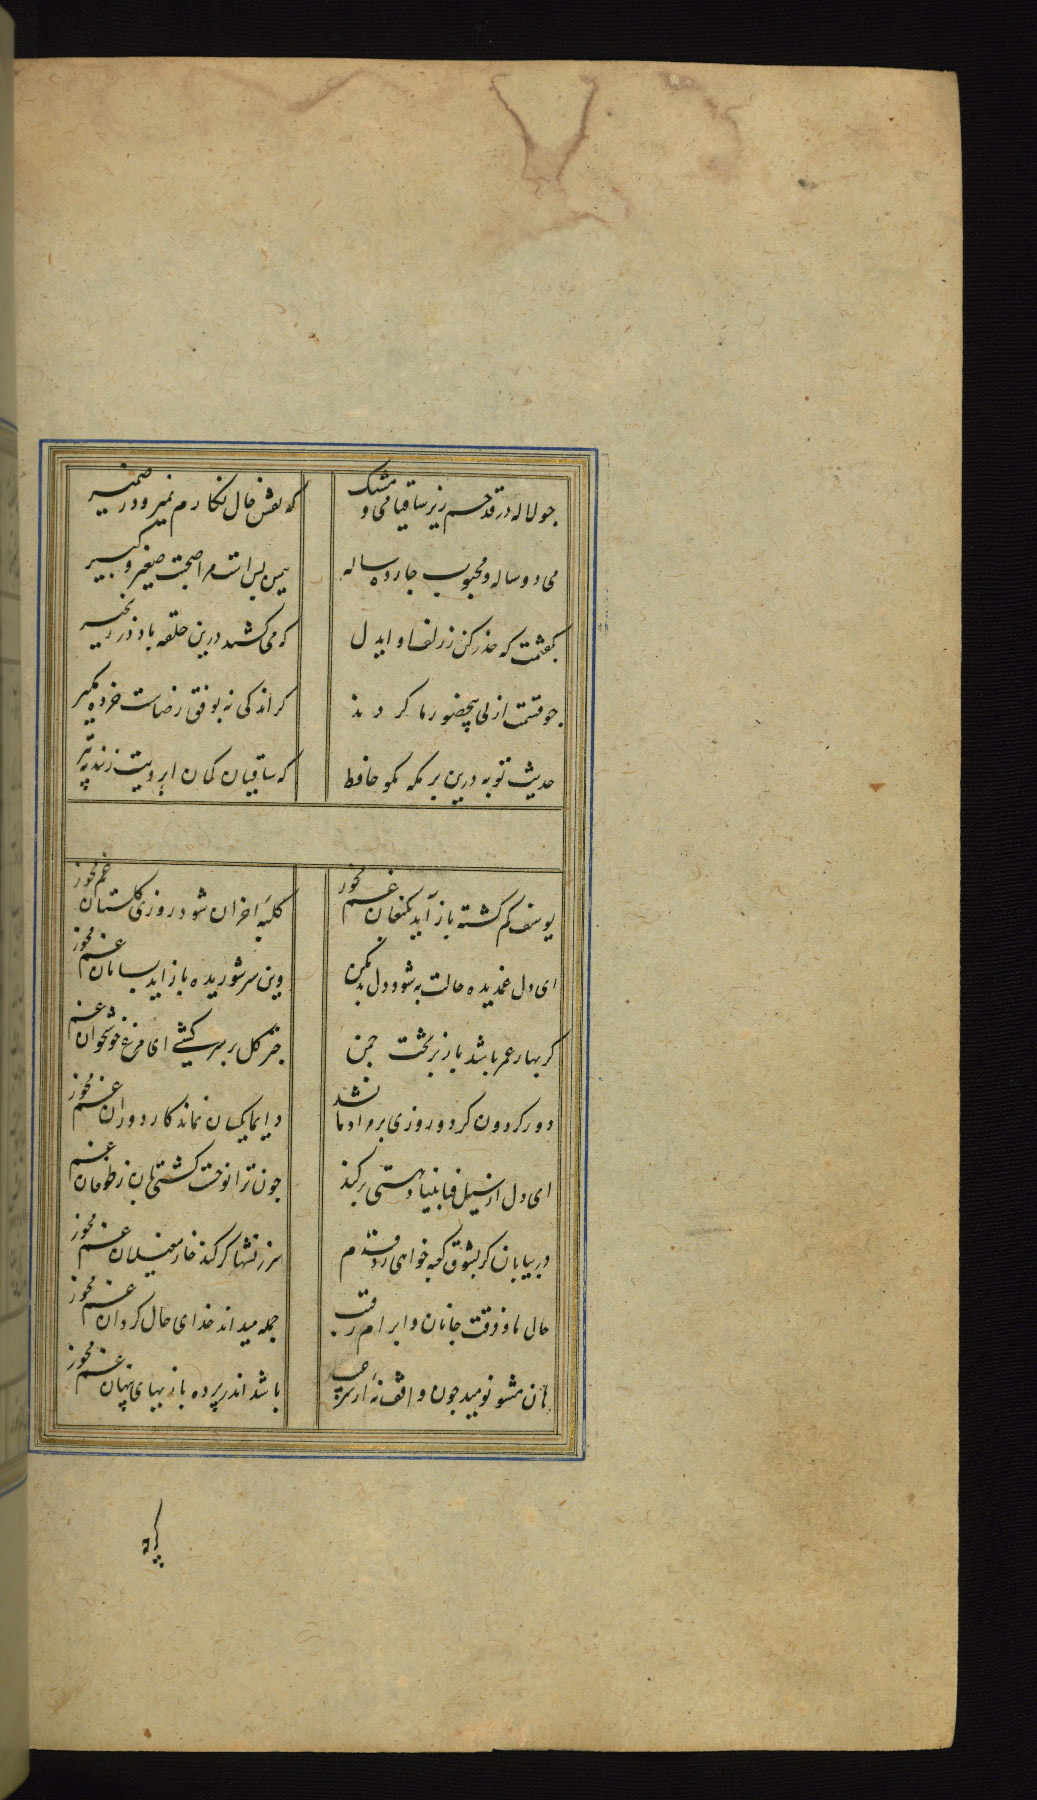 جو لاله در قدحم ریز ساقیا می و مشک
که نقش خال نکارم نمیرود ز ضمیر
می دو ساله و محبوب جارده ساله
همین بس است مرا صحبت صغیر و کبیر
بکفتمت که حذر کن ز زلف او ای دل
که می کشند درین حلقه باد در زنجیر
جو قسمت ازلی بیحضور ما کردند
کر اندکی نه بوفق رضاست خرده مکیر
حدیث توبه درین بزمکه مکو حافظ
که ساقیان کمان ابرویت زنند به تیر
یوسف کم کشته باز آید بکنعان غم مخور
کلبه احزان شود روزی کلستان غم مخور
ای دل غمدیده حالت به شود دل بد مکن
وین سر شوریده باز اید بسامان غم مخور
کر بهار عمر باشد باز بر تخت جمن
جتر کل بر سر کشی ای مرغ خوشخوان غم
دور کردون کر دو روزی بر مراد ما نشد
دایما یکسان نماند کار دوران غم مخور
ای دل ار سیل فنا بنیاد هستی بر کند
جون ترا نوحت کشتی بان ز طوفان غم
در بیابان کر بشوق کعبه خواهی زد قدم
سرزنشها کر کند خار مغیلان غم مخور
حال ما و فرقت جانان و ابرام رقیب
جمله میداند خدای حال کردان غم مخور
هان مشو نومید جون واقف نه از سر غیب
باشد اندر پرده بازیهای پنهان غم مخور